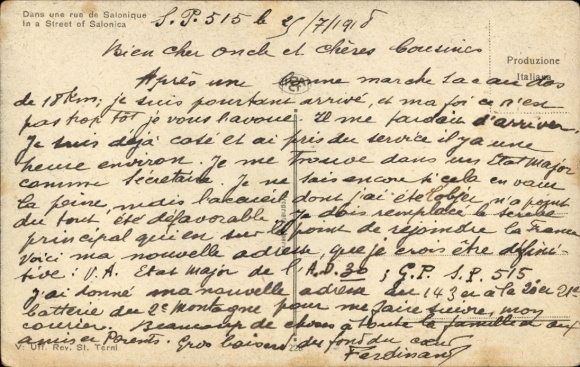 Dans une rue de Salonique
In a Street of Salonica
S.P. 515 le 25/7/1918
Produzione
Italiana
Bien cher oncle et chères Cousines
Après une bonne marche sac au dos
de 18 km, je suis pourtant arrivé, et ma foi ce n'est
pas trop tôt je vous l'avoue. Il me tardait d'arriver
Je suis déjà casé et ai pris du service il y a une
heure environ. Je me trouve dans un Etat Major
comme Secrétaire. Je ne sais encore si cela en vaut
la peine mais l'accueil dont j'ai été l'objet n'a point
du tout été défavorable. Je dois remplacer le scribe
principal qui est sur le point de rejoindre la France
Voici ma nouvelle adresse, que je crois être défini-
tive : V.A. Etat Major de l'A.D. 30 ; G.P. S.P. 515.
J'ai donné ma nouvelle adresse au 143 et à la 20 et 21e
batterie du 2e Montagne pour me faire suivre mon
courier. Beaucoup de choses à toute la famille et aux
amis et Parents. Gros baisers du fond du cœur
Ferdinand
V. Uff. Rev. St. Terni